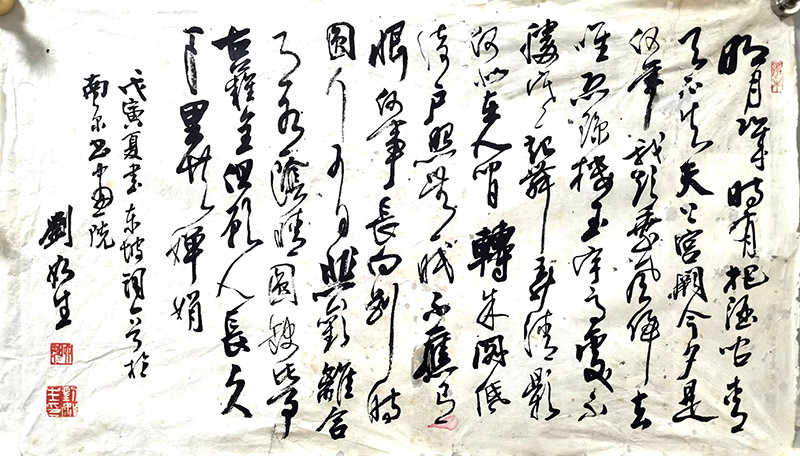 明月幾時有把酒问青
天不知天上宫闕今夕是
何年我欲乘風歸去
唯恐琼樓玉宇高處不
勝寒起舞弄清影
何似在人间轉朱阁低
绮户照無眠不應有
恨何事長向别時
圓人有悲歡離合
月有陰晴圆缺此事
古難全但願人長久
千里共嬋娟
戊寅夏書东坡词一首於
南京书画院
劉
生